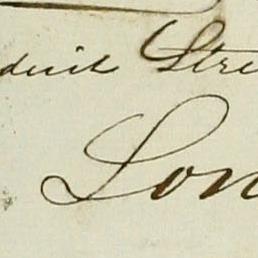 duit Stre
Lon